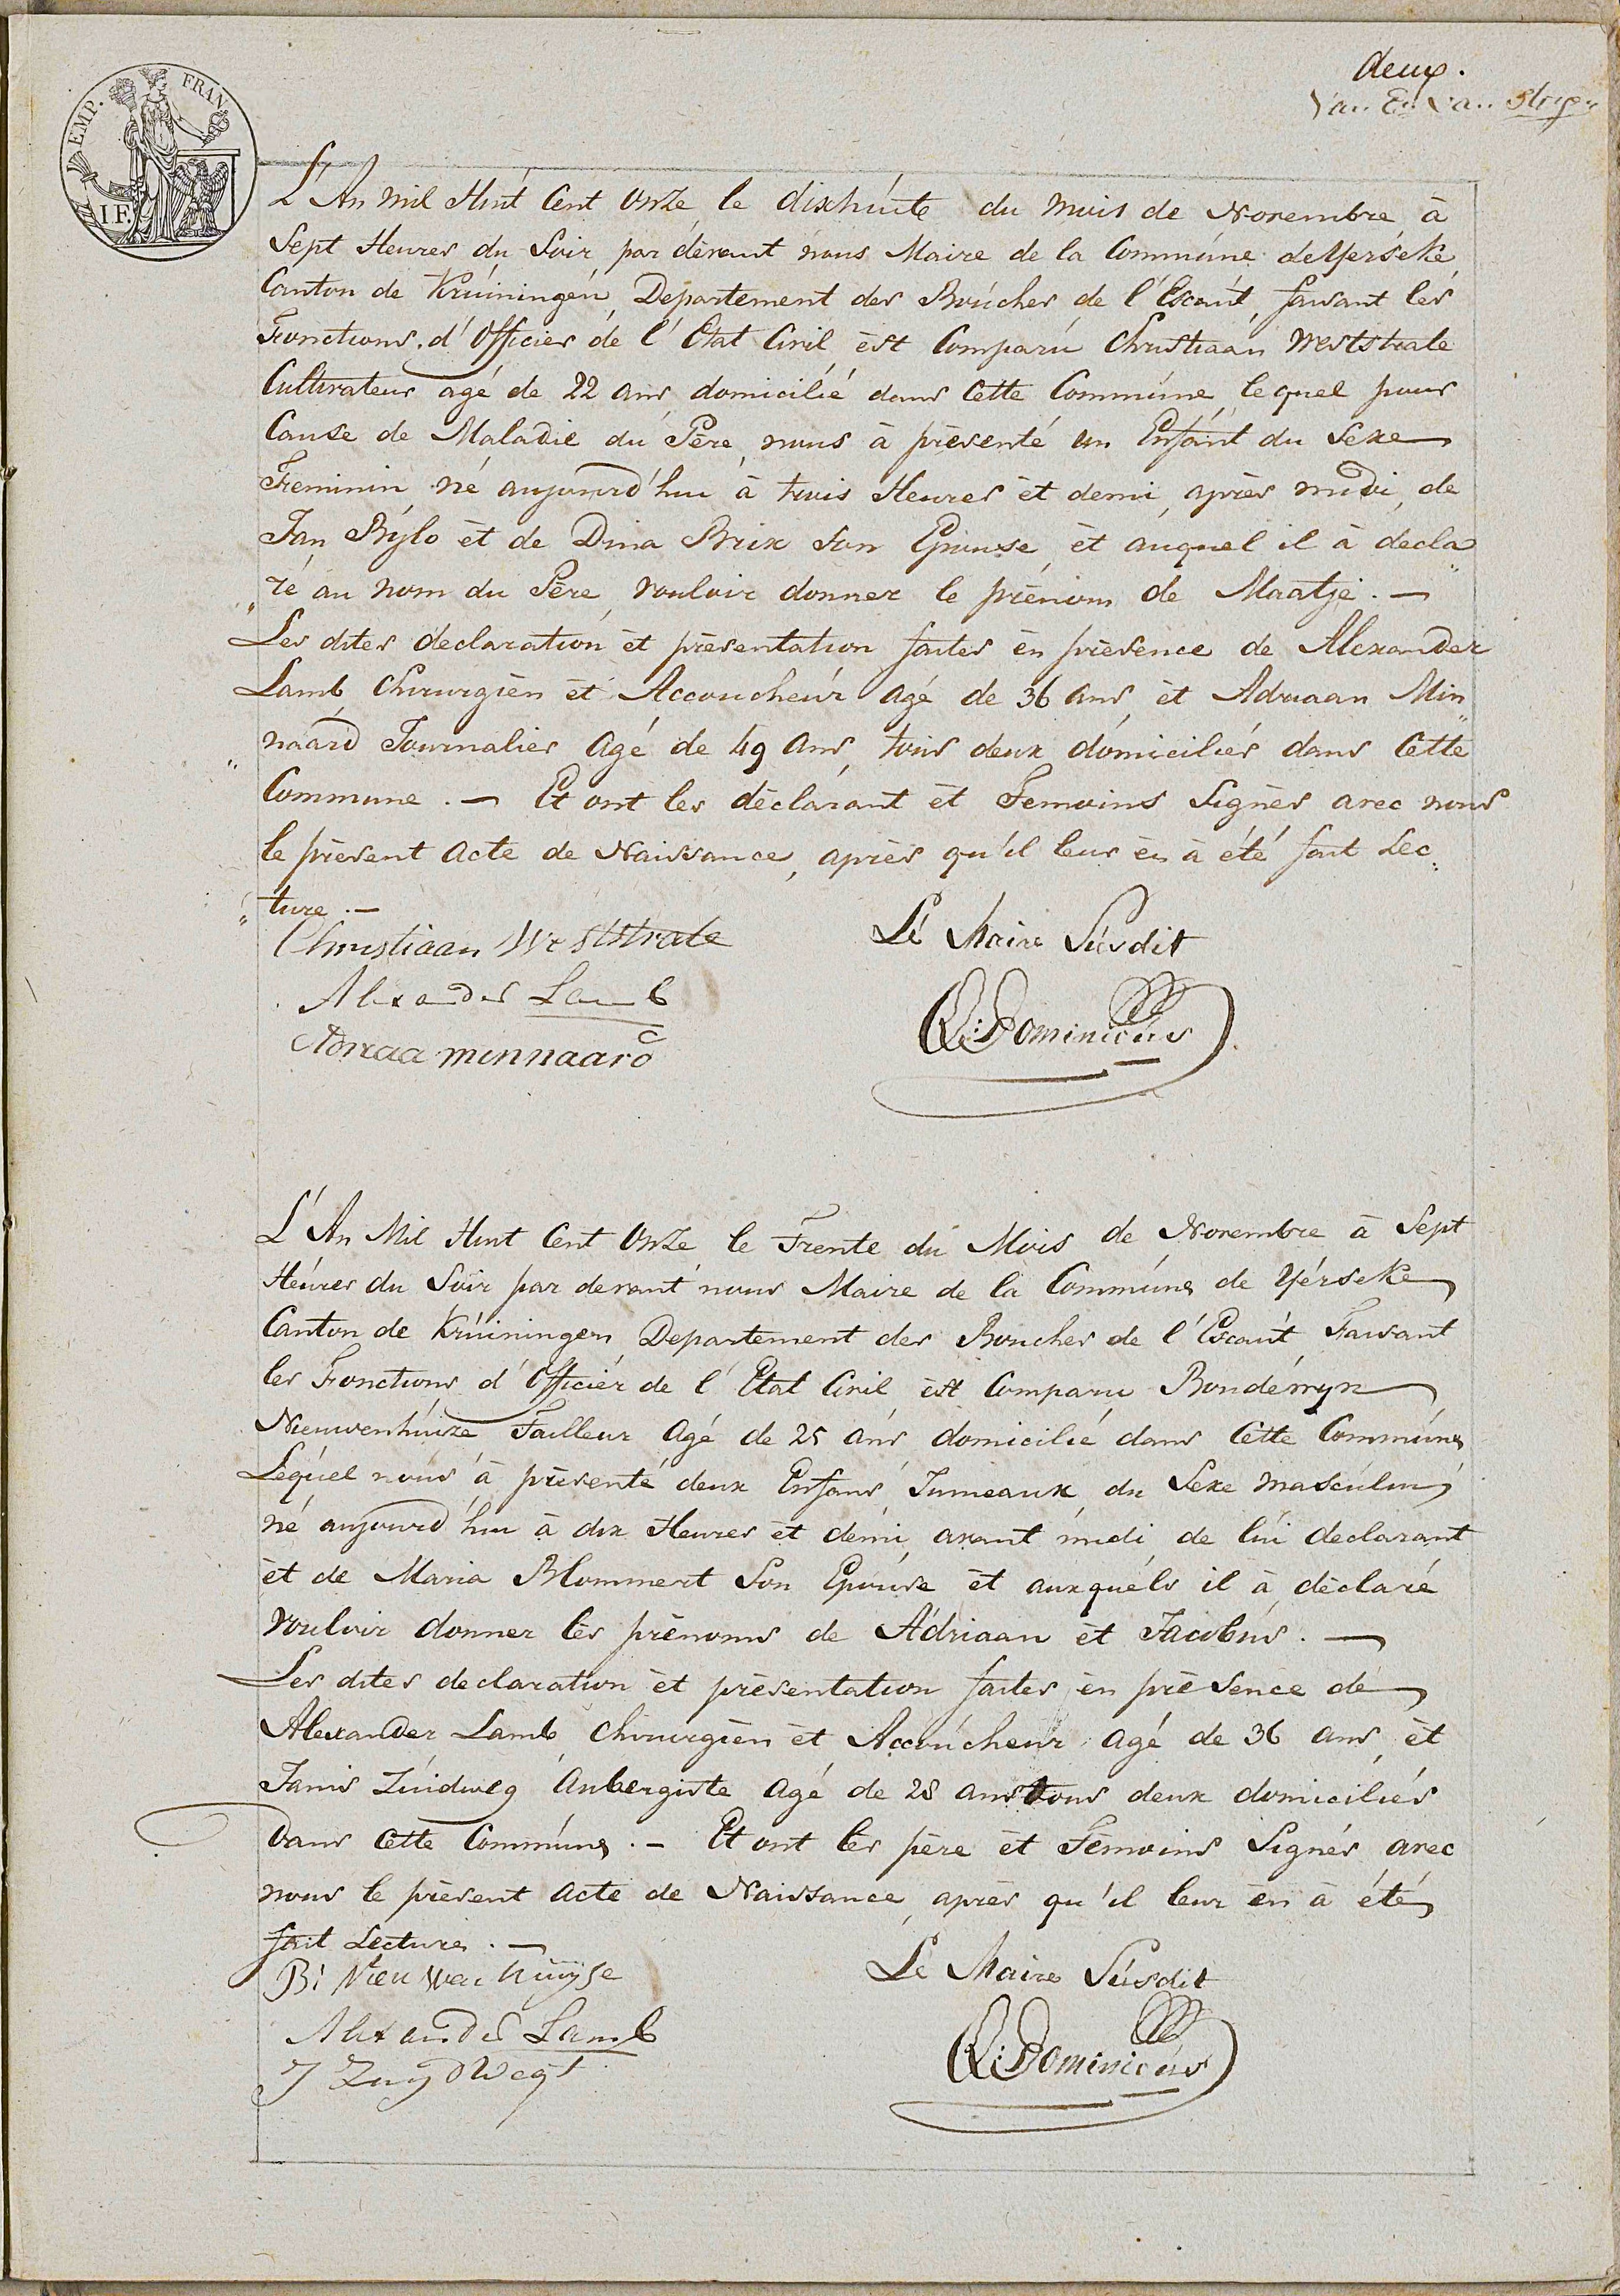 deux.
EMP. FRAN
I.F.
L'An mil Huit Cent Onze le dixhuite du mois de Novembre à
Sept Heures du Soir par devant nous Maire de la Commune de Yerseke
Canton de Kruiningen Departement des Bouches de l'Escaut, faisant les
Fonctions d'Officier de l'Etat Civil est Comparu Christiaan Weststrate
Cultivateur agé de 22 ans domicilié dans Cette Commune, lequel pour
Cause de Maladie du Père, nous à présenté un Enfant du Sexe
Feminin né aujourd'hui à trois Heures èt demi, après midi, de
Jan Bijlo èt de Dina Brix Son Epouse, èt auquel il à decla
"ré au nom du Père vouloir donner le prénom de Maatje. —
Les dites declaration èt présentation faites èn présence de Alexander
Lamb Chirurgièn èt Accoucheur agé de 36 ans, èt Adriaan Min"
"naard Journalier Agé de 49 Ans, tous deux domiciliés dans Cette
Commune. — Et ont les déclarant èt Temoins Signés avec nous
le présent Acte de Naissance, après qu'il leur èn à été fait Lec"
"ture. —
Christiaan Weststrate
Le Maire Susdit
Alexander Lamb
Adriaa minnaard
Q: Dominicus
L'An Mil Huit Cent Onze le Trente du Mois de Novembre à Sept
Heures du Soir par devant nous Maire de la Commune de Yerseke
Canton de Kruiningen Departement des Bouches de l'Escaut, Faisant
les Fonctions d'Officier de l'Etat Civil èst Comparu Boudewyn
Nieuwenhuize Tailleur Agé de 25 ans domicilié dans Cette Commune
Lequel nous à présenté deux Enfans Jumeaux du Sexe masculin
né aujourd'hui à dix Heures èt demi avant midi de lui declarant
èt de Maria Blommert Son Epouse èt auxquels il à déclaré
vouloir donner lès prénoms de Adriaan èt Jacobus. —
Les dites declaration èt présentation faites èn présence de
Alexander Lamb Chirurgièn èt Accoucheur agé de 36 ans, èt
Janis Zuidweg Aubergiste Agé de 28 ans tous deux domiciliés
dans Cette Commune. — Et ont lès père èt Temoins Signés avec
nous le présent Acte de Naissance, après qu'il leur èn à été
fait Lecture. —
B: Nieuwenhuijse
Le Maire Susdit
Alexander Lamb
J Zuydwegt
Q: Dominicus